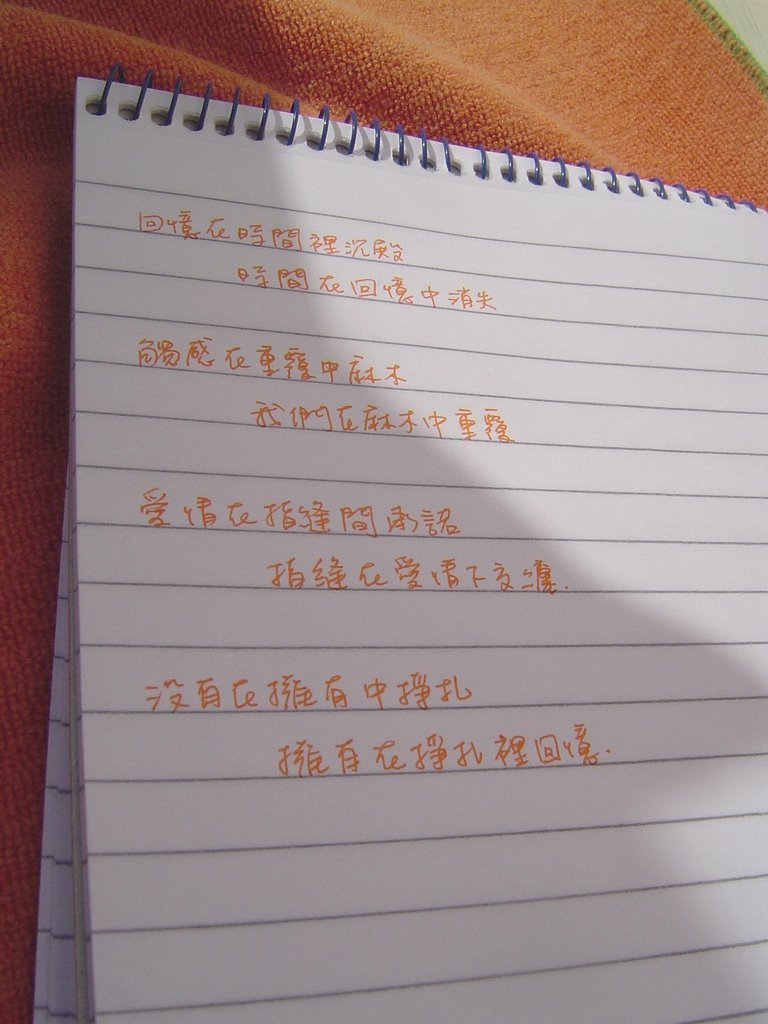 回憶在時間裡沉殿
時間在回憶中消失
觸感在重覆中麻木
我們在麻木中重覆
愛情在指縫間承認
指縫在愛情下交纏.
沒有在擁有中掙扎
擁有在掙扎裡回憶.